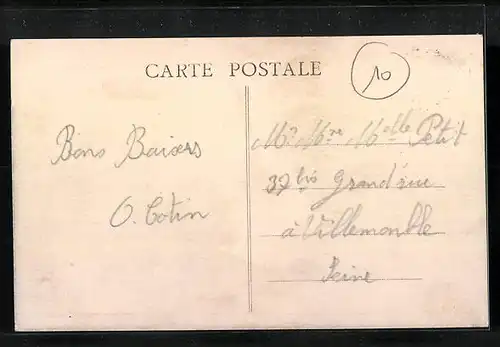 CARTE POSTALE
10
Bons Baisers
O. Cotin
Mr Mme Melle Petit
37 bis Grand'rue
à Villemomble
Seine